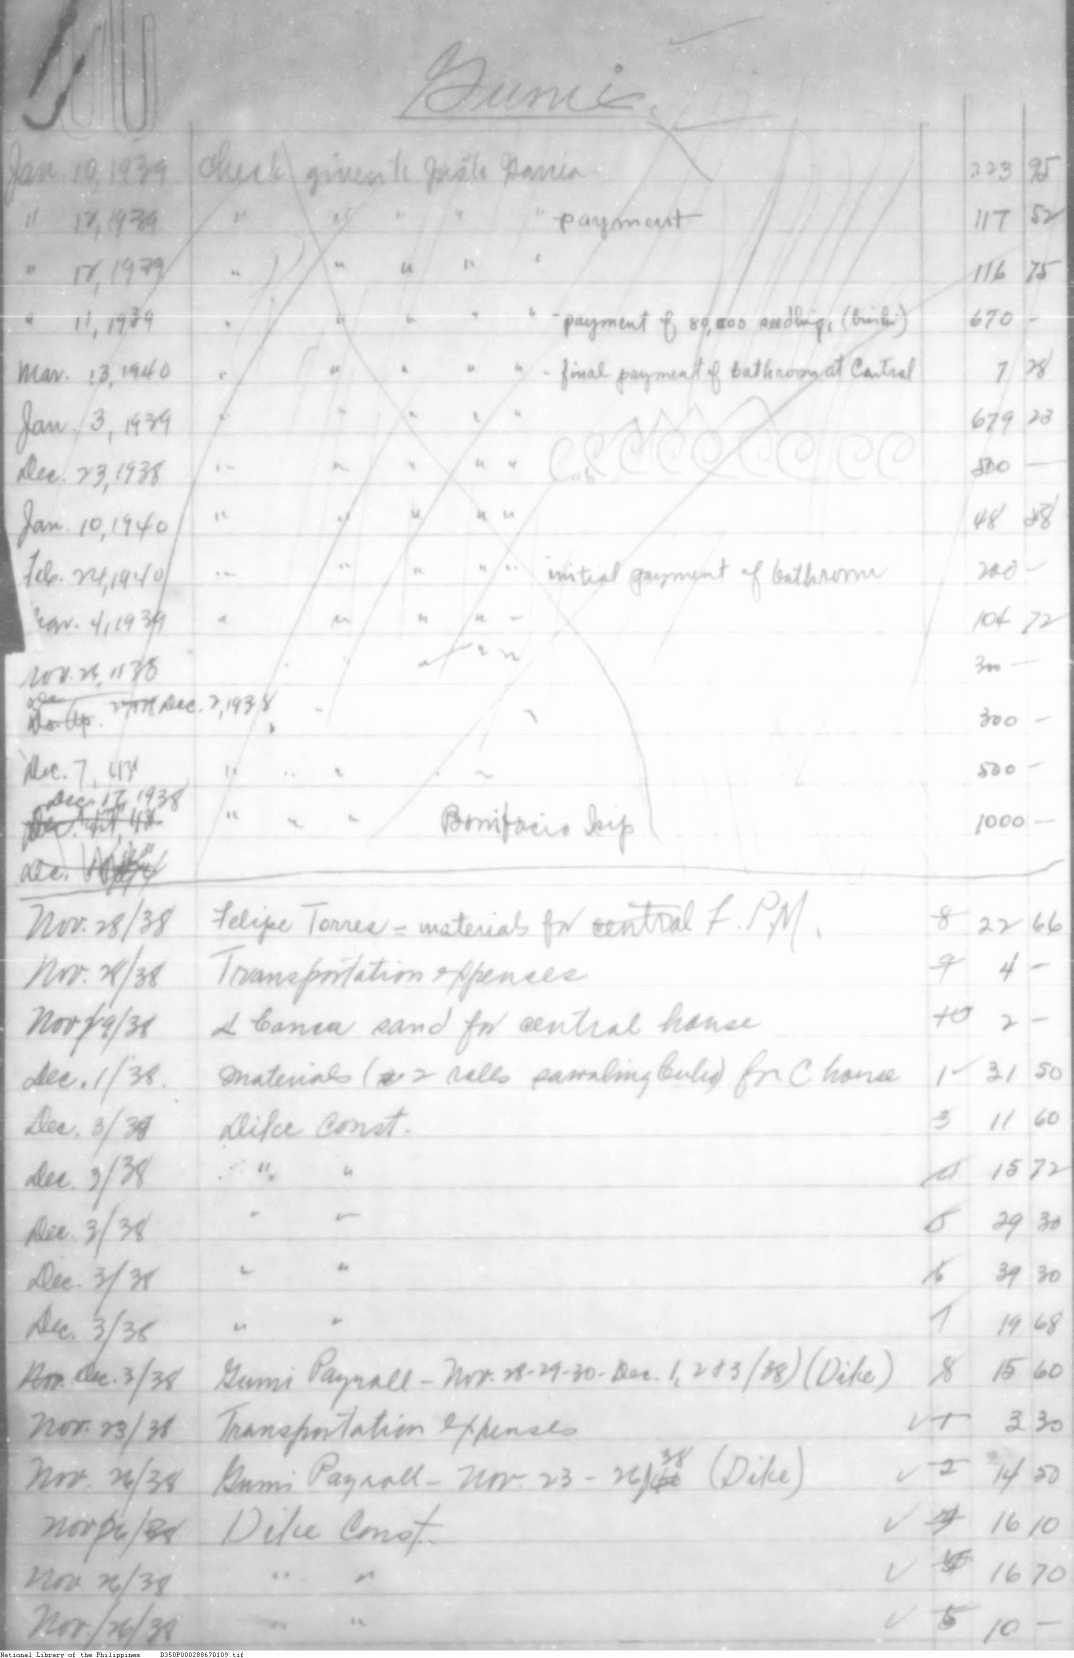 Gumi
Jan. 10, 1939 Check given to Justo 223 95
" 12, 1939 " " " " " payment 117 52
" 12, 1939 " " " " " 116 75
" 11, 1939 " " " " " - payment of 80,000 seedlings, 670 -
Mar. 13, 1940 " " " " " - final payment of bathroom at Central 7 28
Jan. 3, 1939 " " " " " 679 23
Dec. 23, 1938 " " " " " 500 —
Jan. 10, 1940 " " " " " 48 88
Feb. 24, 1940 " " " " " initial payment of bathroom 200 -
4, 1939 " " " " " 104 72
Nov. 26, 1938 " " " 300 —
Dec. 2, 1938 300 -
Dec. 7, " " " " " 500 -
Dec. 17, 1938 " " " Bonifacio 1000 —
Dec.
Nov. 28/38 Felipe Torres - materials for central F. P. M. 8 22 66
Nov. 28/38 Transportation expenses 9 4 -
Nov. 29/38 sand for central house 10 2 -
Dec. 1/38. materials (2 rolls sawaling) for C house 1 31 50
Dec. 3/38 Dike Const. 3 11 60
Dec. 3/38 " " 15 72
Dec. 3/38 " " 5 29 30
Dec. 3/38 " " 6 39 30
Dec. 3/38 " " 7 19 68
Nov. Dec. 3/38 Gumi Payroll - Nov. 28-29-30-Dec. 1, 2 & 3/38) (Dike) 8 15 60
Nov. 23/38 Transportation expenses ✓ 1 3 30
Nov. 26/38 Gumi Payroll - Nov. 23 - 26/38 (Dike) ✓ 2 14 50
Nov. 26/38 Dike Const. ✓ 16 10
Nov. 26/38 " " ✓ 16 70
Nov. 26/38 " " ✓ 5 10 -
National Library of the Philippines D350P000288670109.tif